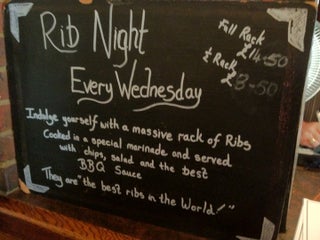 Rib Night
Every Wednesday
Full Rack
£14.50
½ Rack
£8.50
Indulge yourself with a massive rack of Ribs
Cooked in a special marinade and served
with chips, salad and the best
BBQ Sauce
They are "the best ribs in the World!"